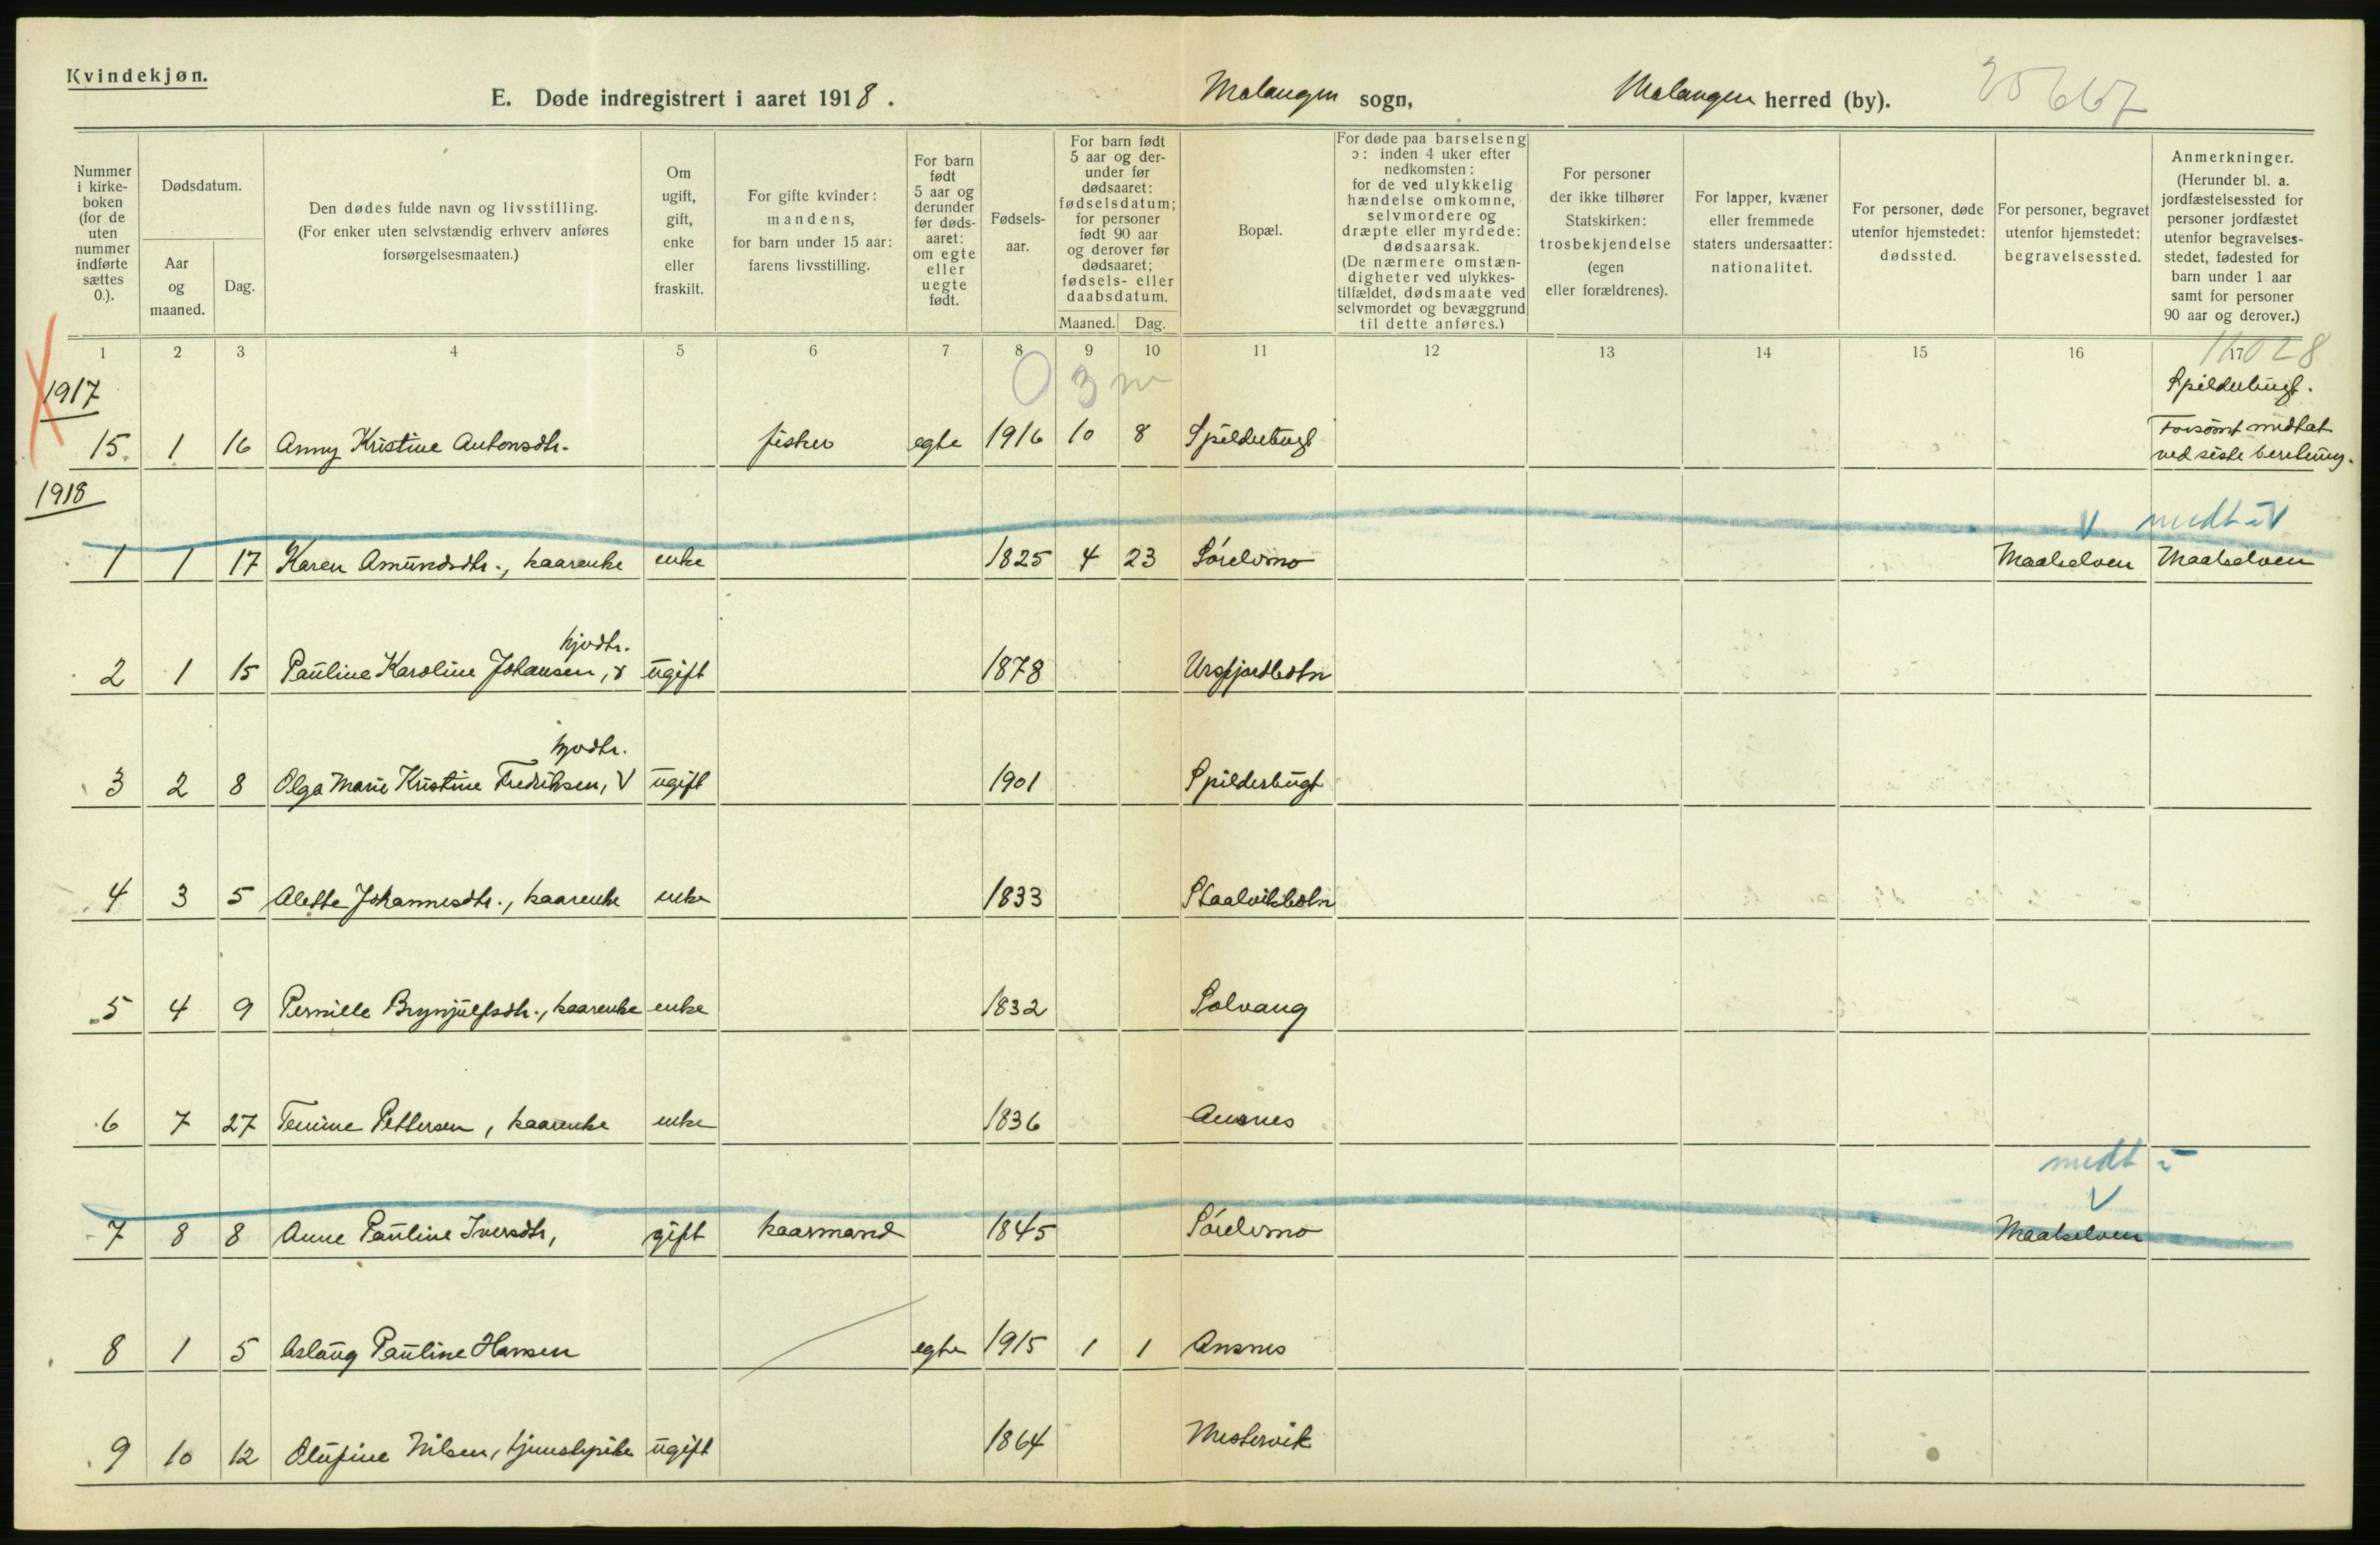 Kvindekjøn.
E. Døde indregistrert i aaret 1918. Malangen sogn, Malangen herred (by).
Nummer i kirkeboken (for de uten nummer indførte sættes 0.).
Dødsdatum.
Aar og maaned.
Dag.
Den dødes fulde navn og livsstilling. (For enker uten selvstændig erhverv anføres forsørgelsesmaaten.)
Om ugift, gift, enke eller fraskilt.
For gifte kvinder: mandens, for barn under 15 aar: farens livsstilling.
For barn født 5 aar og derunder før dødsaaret: om egte eller uegte født.
Fødselsaar.
For barn født 5 aar og derunder før dødsaaret: fødselsdatum; for personer født 90 aar og derover før dødsaaret; fødsels- eller daabsdatum.
Maaned. Dag.
Bopæl.
For døde paa barselseng ɔ: inden 4 uker efter nedkomsten: for de ved ulykkelig hændelse omkomne, selvmordere og dræpte eller myrdede: dødsaarsak. (De nærmere omstændigheter ved ulykkestilfældet, dødsmaate ved selvmordet og bevæggrund til dette anføres.)
For personer der ikke tilhører Statskirken: trosbekjendelse (egen eller forældrenes).
For lapper, kvæner eller fremmede staters undersaatter: nationalitet.
For personer, døde utenfor hjemstedet: dødssted.
For personer, begravet utenfor hjemstedet: begravelsessted.
Anmerkninger. (Herunder bl. a. jordfæstelsessted for personer jordfæstet utenfor begravelsesstedet, fødested for barn under 1 aar samt for personer 90 aar og derover.)
1 2 3 4 5 6 7 8 9 10 11 12 13 14 15 16 17
0 3 m
1917
Spilderbugt.
15. 1 16 Anny Kristine Antonsdtr. fisker egte 1916 10 8 Spilderbugt Forsömt medtat ved siste beretning.
1918
medt
1 1 17 Karen Amundsdtr., kaarenke enke 1825 4 23 Sörelvmo Maalselven Maalselven
hjvdtr.
2 1 15 Pauline Karoline Johansen, ugift 1878 Ursfjordbotn
hjvdtr.
3 2 8 Olga Marie Kristine Fredriksen, ugift 1901 Spilderbugt
4 3 5 Alette Johannesdtr., kaarenke enke 1833 Staalvikbotn
5 4 9 Pernille Brynjulfsdtr., kaarenke enke 1832 Solvang
6 7 27 Tenine Pettersen, kaarenke enke 1836 Ansnes
medt
7 8 8 Anne Pauline Iversdtr, gift kaarmand 1845 Sörelvmo Maalselven
8 1 5 Aslaug Pauline Hansen egte 1915 1 1 Ansnes
9 10 12 Olufine Nilsen, tjenestepike ugift 1864 Mestervik